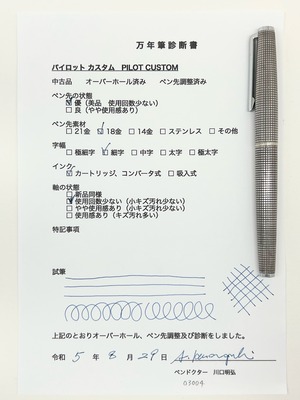 万年筆診断書
パイロット カスタム PILOT CUSTOM
中古品 オーバーホール済み ペン先調整済み
ペン先の状態
☑優（美品 使用回数少ない）
□良（やや使用感あり）
ペン先素材
□21金 ☑18金 □14金 □ステンレス □その他
字幅
□極細字 ☑細字 □中字 □太字 □極太字
インク
☑カートリッジ、コンバータ式 □吸入式
軸の状態
□新品同様
☑使用回数少ない（小キズ汚れ少ない）
□やや使用感あり（小キズ汚れ少ない）
□使用感あり（キズ汚れ多い）
特記事項
試筆
上記のとおりオーバーホール、ペン先調整及び診断をしました。
令和 5 年 8 月 29 日
ペンドクター 川口明弘
03004